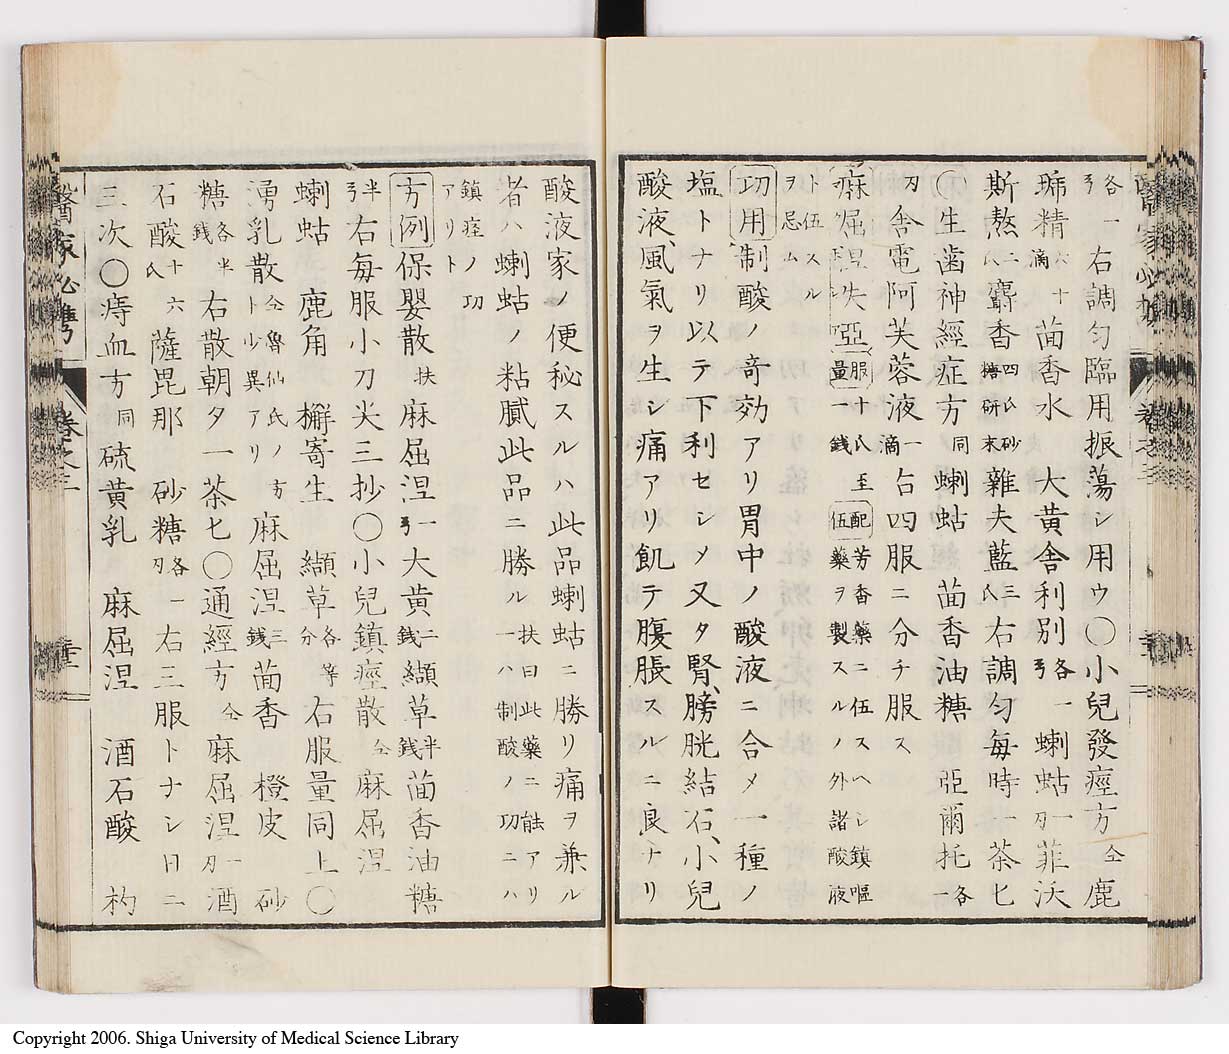 各一右調勻臨用振蕩シ用ウ〇小兒發痙方仝鹿
琊精六十滴茴香水　大黄舎利別各一蝲蛄刄一菲沃
斯熬二氏麝香四氏砂糖研末雜夫藍三氏右調勻每時一茶匕
〇生歯神經症方同蝲蛄　茴香油糖　亞爾托各一
刄舎電阿芙蓉液一滴右四服ニ分チ服ス
麻屈涅失啞服量十氏至一錢配伍芳香藥ニ伍スヘシ鎮嘔藥ヲ製スルノ外諸酸液
ト伍スルヲ忌ム
功用制酸ノ奇効アリ胃中ノ酸液ニ合メ一種ノ
塩トナリ以テ下利セシメ又タ腎、膀胱結石、小兒
酸液、風氣ヲ生シ痛アリ飢テ腹脹スルニ良ナリ
酸液家ノ便秘スルハ此品蝲蛄ニ勝リ痛ヲ兼ル
者ハ蝲蛄ノ粘膩此品ニ勝ル扶曰此藥ニ能アリ一ハ制酸ノ功ニハ
鎮痙ノ功アリト
方例保嬰散扶麻屈涅一大黄二錢纈草半錢茴香油糖
半右每服小刀尖三抄〇小兒鎮痙散仝麻屈涅
蝲蛄　鹿角　檞寄生　纈草各等分右服量同上〇
湧乳散仝魯仙氏ノ方ト少異アリ麻屈涅三錢茴香　橙皮　砂
糖各半錢右散朝夕一茶匕〇通經方仝麻屈涅一刄酒
石酸十六氏薩毘那　砂糖各一刄右三服トナシ日ニ
三次〇痔血方同硫黄乳　麻屈涅　酒石酸　杓
醫家必携　卷之三